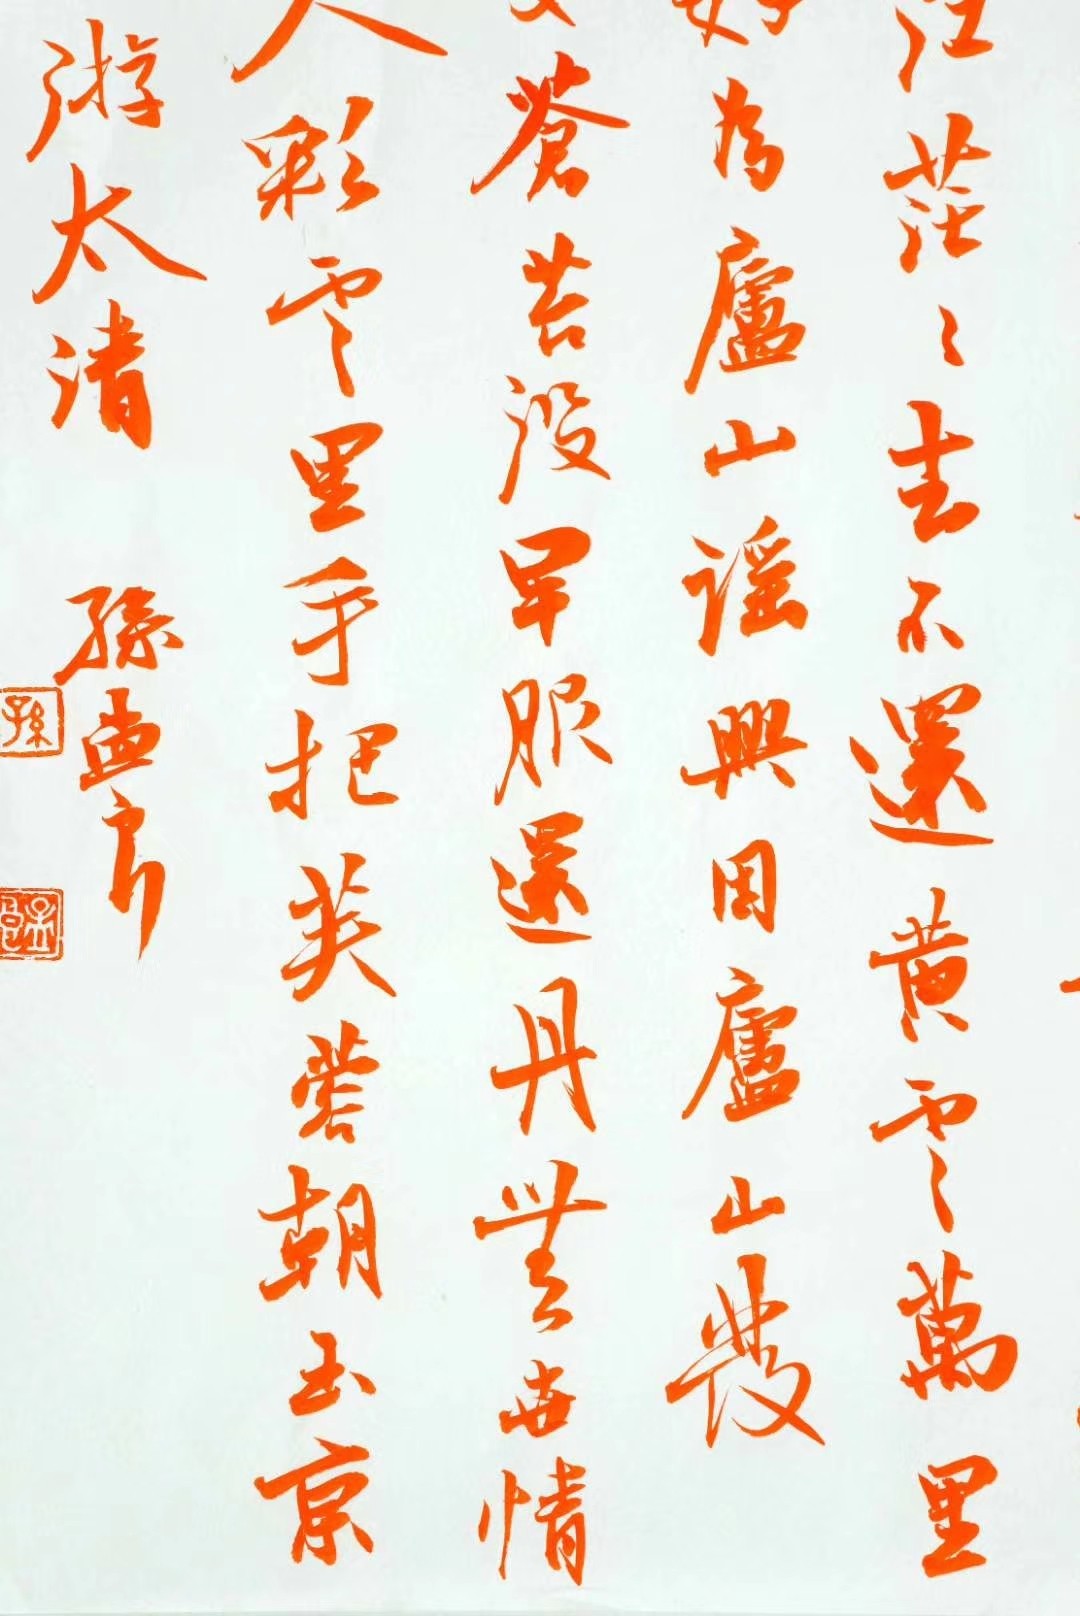 茫茫〻去不還黄雲萬里
好為廬山謡興因廬山發
蒼苔没早服還丹無世情
人彩雲里手把芙蓉朝玉京
游太清
孫孟郎
孫